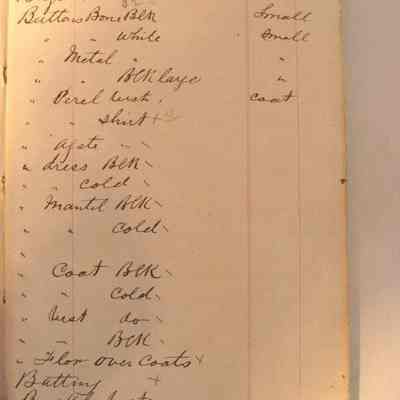 Buttons Bone Blk Small
" " White " Small
" Metal " "
" " Blk large "
" Perel Vest, Coat
" " Shirt +
" Agate " "
" dress Blk
" " Cold
" Mantel Blk
" " Cold
"
" Coat Blk
" " Cold
" Vest do
" " Blk
" Flor Over Coats +
Batting +